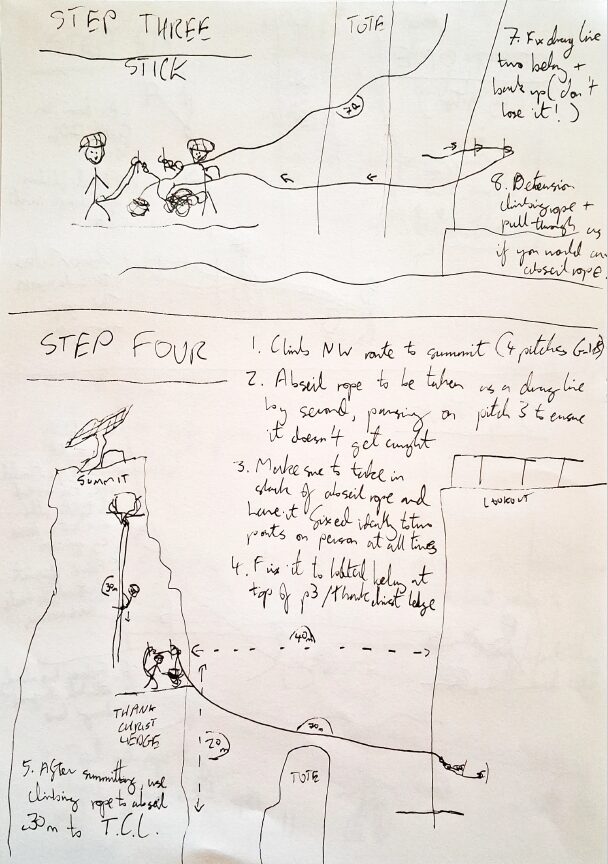 STEP THREE
STICK
TOTE
70
7. Fix drag line
two belay +
back up (don't
lose it!)
8. Detension
climbing rope +
pull-through as
if you would an
abseil rope.
STEP FOUR
1. Climb NW route to summit (4 pitches G-18)
2. Abseil rope to be taken as a drag line
by second, pausing on pitch 3 to ensure
it doesn't get caught
3. Make sure to take in
slack of abseil rope and
have it fixed ideally to two
points on person at all times
4. Fix it to bolted belay at
top of p3/Thank christ ledge
SUMMIT
LOOKOUT
30m
40m
THANK
CHRIST
LEDGE
20m
70m
TOTE
5. After summitting, use
climbing rope to abseil
30m to T.C.L.